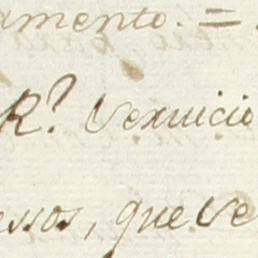 amento. =
R.? Vexuicio
essos, que Ve